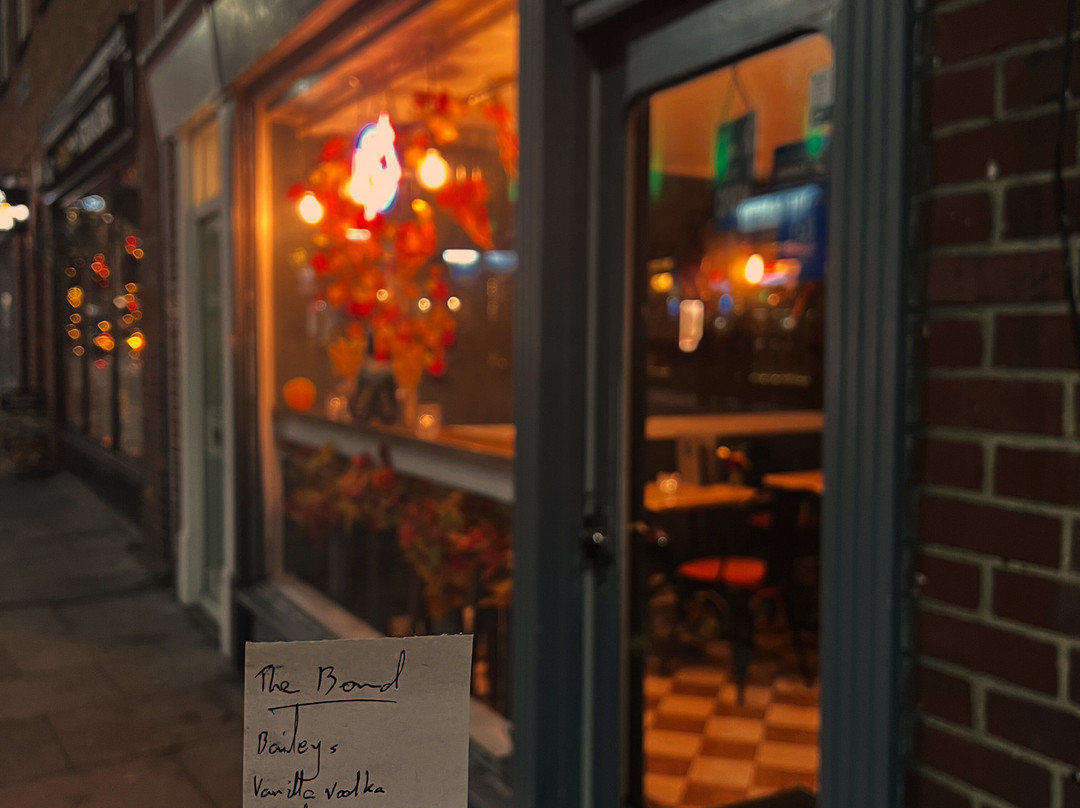 The Bond
Baileys
Vanilla vodka